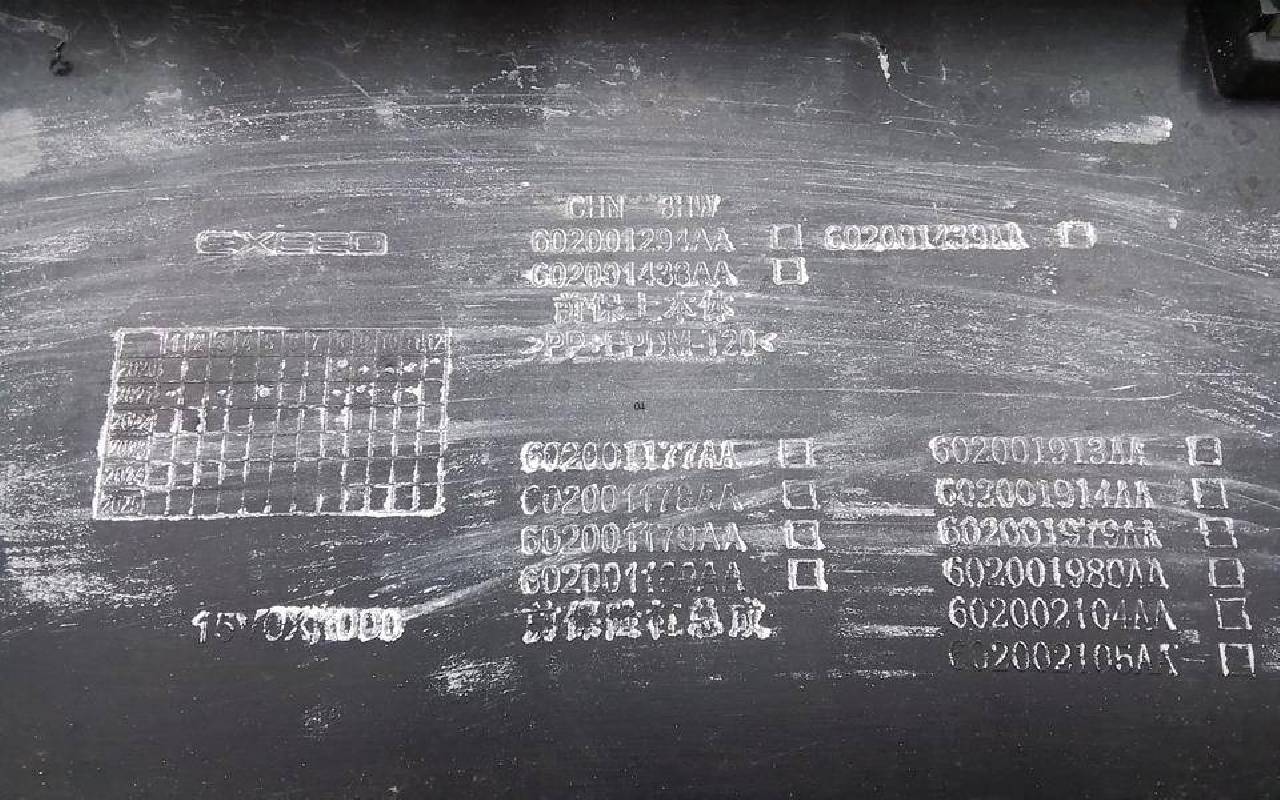 CHN 8HW
EXEED
602001294AA 602001439AA
602001438AA
前保上本体
>PP+EPDM-T20<
1 2 3 4 5 6 7 8 9 10 11 12
2020
2021
2022
2023
2024
2025
01
602001177AA 602001913AA
602001178AA 602001914AA
602001179AA 602001979AA
602001980AA
602002104AA
前保险杠总成
602002105AA